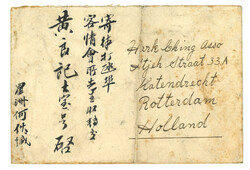 寄荷
客情會所
黄良記大宝号 啓
星洲何
Hark Ching Asso
Atjeh Straat 33A
Katendrecht
Rotterdam
Holland